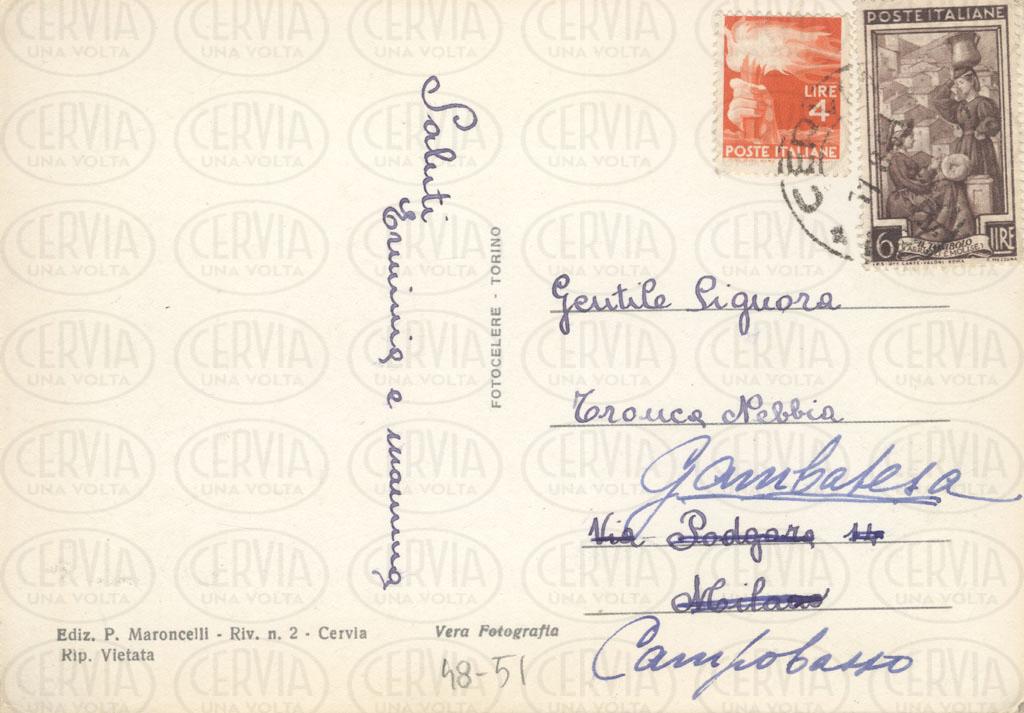 Saluti
Erminia e mamma
FOTOCELERE - TORINO
LIRE
4
POSTE ITALIANE
POSTE ITALIANE
6 LIRE
IL TOMBOLO
Gentile Signora
Tronca Nebbia
Gambatesa
Via Podgora 14
Milano
Campobasso
Ediz. P. Maroncelli - Riv. n. 2 - Cervia
Rip. Vietata
Vera Fotografia
48-51
CERVIA
UNA VOLTA